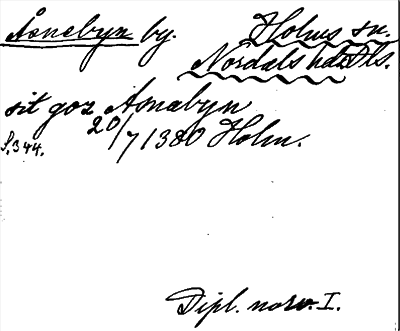 Åsnebyn by. Holms sn.
Nordals hd Dls.
sit goz Asnabyn
20/7 1380 Holm.
S. 344.
Dipl. norv. I.